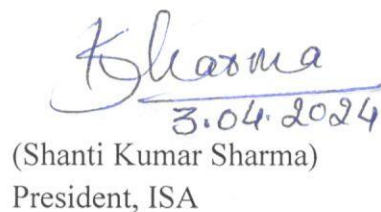 KSharma
3.04.2024
(Shanti Kumar Sharma)
President, ISA